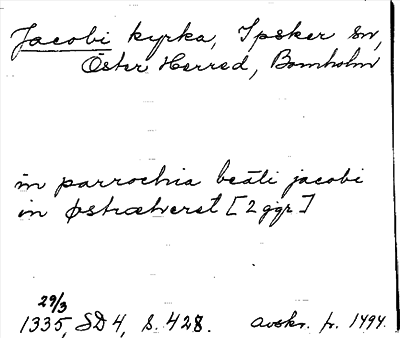 Jacobi kyrka, Ipsker sn,
Öster Herred, Bornholm
in parrochia beati jacobi
in østræheret [2 ggr]
29/3
1335, SD 4, S. 428. avskr. fr. 1494.